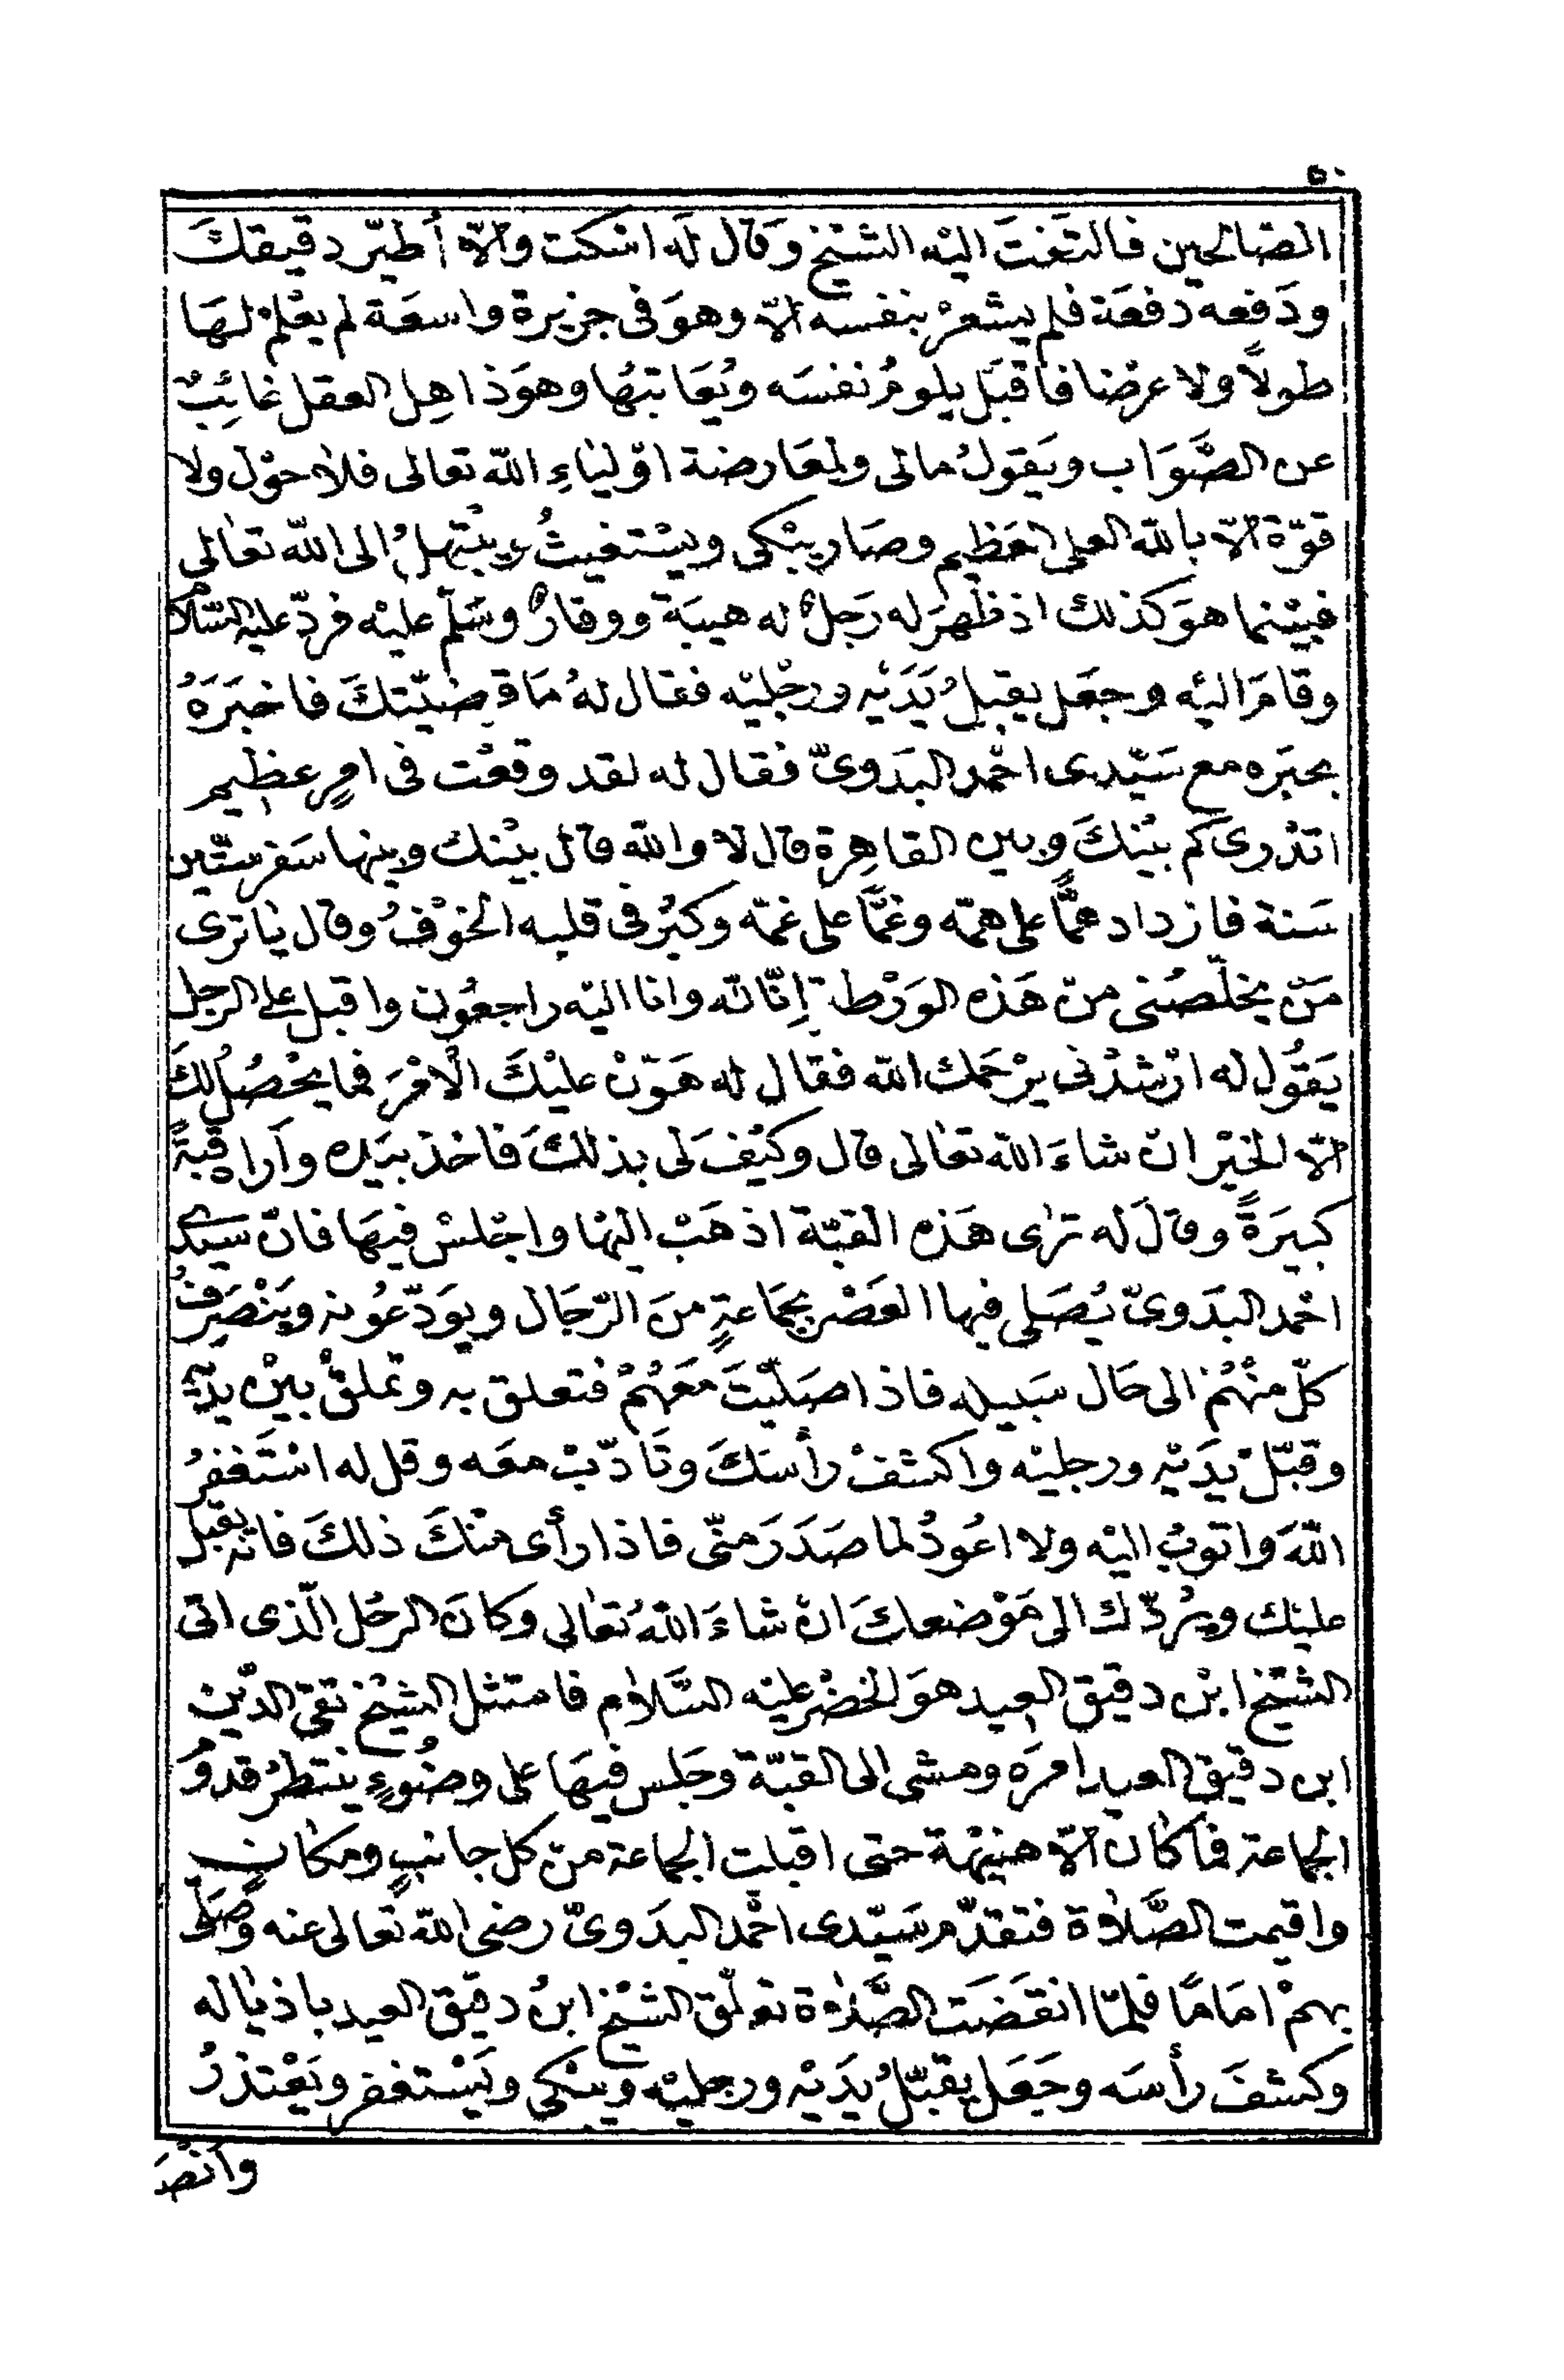 ٥٠
الصّالحين فالتفتَ اليْه الشيْخ وَقال لَه اسْكت والّا أُطيّر دقيقكَ
ودَفعه دفعَة فلم يشعرْ بنفسه الّا وهوَ فى جزيرة واسعَة لم يعْلمْ لهَا
طولاً ولا عرضا فأقبَل يلومُ نفسَه ويُعَاتبهُا وهوَ ذاهِل العقل غائِبٌ
عن الصَّوَاب ويَقولُ مالى ولمعَارضة اوْليَاءِ الله تعالى فلاَ حوْل ولا
قوّة الّا بالله العلى العَظِيم وصَار يبْكى ويسْتغيثُ ويبْتهلُ الى الله تعَالى
فبيْنما هوَ كذلك اذ ظهرَ له رَجلٌ له هيبَة ووقارٌ وسَلّم عليْه فردّ عليه السّلام
وقامَ اليْه وجعَل يقبلُ يَدَيْه ورجْليْه فقال لهُ مَا قضيّتكَ فاخبَرَهُ
بخبَره مع سَيّدى احْمد البدَوىّ فقال له لقد وقعْت فى امرٍ عظيم
اتدْرى كم بيْنكَ وبين القاهِرة قال لا والله قال بيْنك وبينها سَفر ستّين
سَنة فازداد همًّا على همّه وغمًّا على غمّه وكبُر فى قلبه الخوْفُ وقال يَا ترى
مَنْ يخلّصُنى منْ هَذه الوَرْطة إنّا لله وانا اليْه راجعُون واقبل على الرجل
يَقُول له ارْشدْنى يرْحَمك الله فقال له هَوّنْ عليْكَ الْامْرَ فما يحْصُل لكَ
الّا الخيْر انْ شاءَ الله تعَالى قال وكيْفَ لى بذلكَ فاخذ بيَده وآراه قبةً
كبيرَةً وقالَ له ترَى هَذه القبّة اذهَبْ اليْها واجْلسْ فيهَا فانّ سيدى
احْمد البدَوىّ يُصَلى فيها العَصْر بجمَاعةٍ منَ الرّجَال ويوَدّعُونه ويَنْصَرفُ
كلّ منْهُمْ الى حَال سَبيله فاذا صَليْتَ معَهُمْ فتعلق به وتملقْ بيْن يدَيْه
وقبّلْ يدَيْه ورجليْه واكشفْ رأسَكَ وتَأدّبْ معَه وقل له اسْتَغفرُ
اللهَ واتوبُ اليْه ولا اعُودُ لما صَدَرَ منّى فاذا رأى منْكَ ذلكَ فانه يقبل
عليْك ويرُدّك الى مَوْضعكَ انْ شاءَ اللهُ تعَالى وكانَ الرجُل الّذى اتى
الشيْخ ابْن دقيق العيد هوَ الخضْر عليْه السَّلاَم فامتثل الشيْخ تقىّ الدّين
ابن دقيق العيد امرَه ومشى الى القبّة وجَلس فيهَا على وضُوءٍ ينتظرُ قدومَ
الجماعة فما كان الّا هنيْهة حتى اقبلت الجماعة منْ كل جانبٍ ومكانٍ
واقيمت الصَّلاَة فتقدّم سَيّدى احْمد البدَوىّ رضى الله تعَالى عنه وصَلّى
بهمْ امَامًا فلمّا انقضَت الصَّلاَة تعلّق الشيْخ ابنُ دقيق العيد باذيَاله
وكشفَ رأسَه وجَعَل يقبّلُ يدَيْه ورجليْه ويبْكى ويَسْتغفر ويَعْتذرُ
وانْصَ